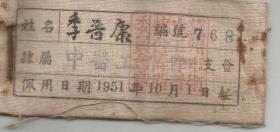 姓名 李晋康 編號 768
隸屬 中苗工 支會
佩用日期1951年10月1日起